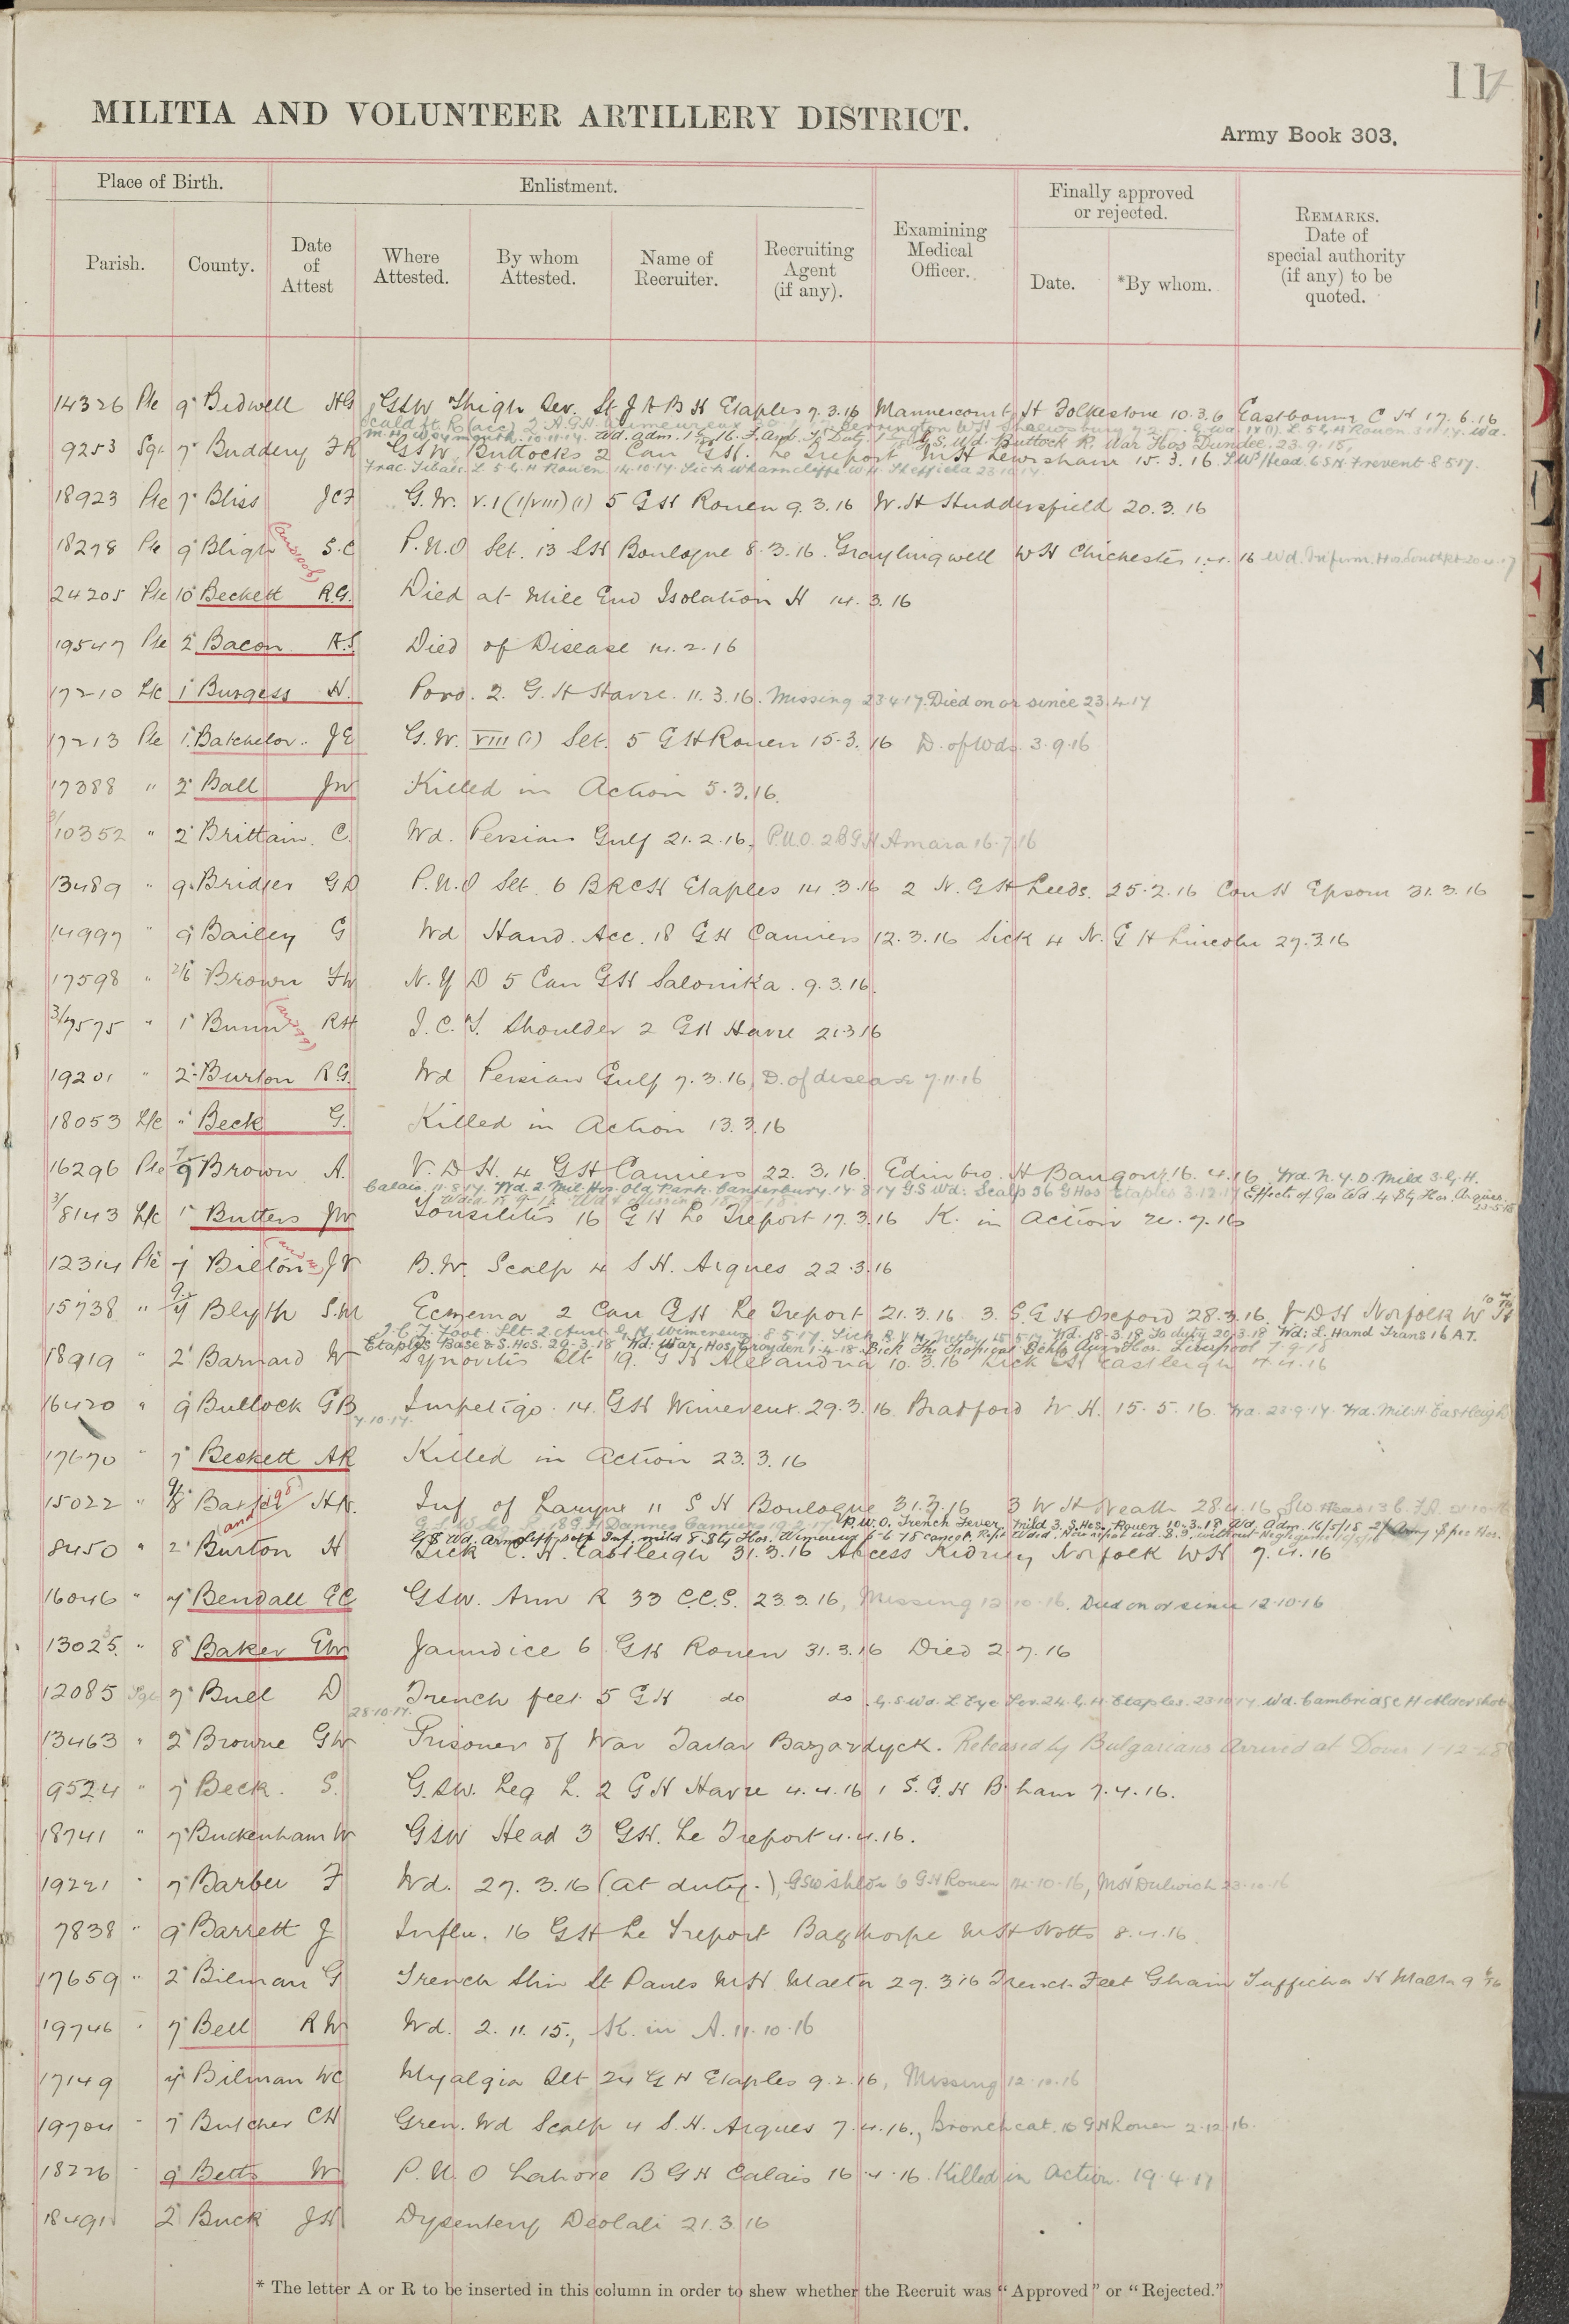 117
MILITIA AND VOLUNTEER ARTILLERY DISTRICT.
Army Book 303.
Place of Birth.
Enlistment.
Finally approved or rejected.
REMARKS. Date of special authority (if any) to be quoted.
Parish.
County.
Date of Attest
Where Attested.
By whom Attested.
Name of Recruiter.
Recruiting Agent (if any).
Examining Medical Officer.
Date.
*By whom.
14326 Pte 9 Bidwell HG GSW Thigh Sev. St J A B H Etaples 7.3.16 Mannercourt H Folkestone 10.3.6 Eastbourne C H 17.6.16
G.S. Wd. Buttock R. War Hos Dundee. 23.9.15.
9253 Sgt 7 Buddery FR GSW Buttocks 2 Can GH. Le Treport M H Lewisham 15.3.16 S.W. Head. 6 S H Frevent 8.5.17.
Frac. Tibia. L 5 G.H Rouen. 14.10.17. Sick Wharncliffe W.H. Sheffield 23.10.17
18923 Pte 7 Bliss JCF G.W. V.I (I/VIII) (1) 5 GH Rouen 9.3.16 W.H Huddersfield 20.3.16
18278 Pte 9 Bligh S.C P.U.O Slt. 13 SH Boulogne 8.3.16. Graylingwell WH Chichester 1.4.16
24205 Pte 10 Beckett R.G. Died at Mile End Isolation H 14.3.16
19547 Pte 2 Bacon A.S. Died of Disease 14.2.16
17210 L/c 1 Burgess H. 2. G.H Havre. 11.3.16. Missing 23.4.17. Died on or since 23.4.17
17213 Pte 1 Batchelor. JE G.W. VIII (1) Slt. 5 GH Rouen 15.3.16 D. of Wds. 3.9.16
17388 " 2 Ball JW Killed in Action 5.3.16.
3/10352 " 2 Brittain. C. Wd. Persian Gulf 21.2.16, P.U.O. 2 B G H Amara 16.7.16
13489 " 9 Bridges GD P.U.O Slt 6 BRCH Etaples 14.3.16 2 N.GH Leeds. 25.2.16 Con H Epsom 31.3.16
14997 " 9 Bailey G Wd Hand. Acc. 18 GH Camiers 12.3.16 Sick 4 N.G H Lincoln 27.3.16
17598 " 2/6 Brown FW N.Y D 5 Can GH Salonika. 9.3.16.
3/7575 " 1 Bunn RH I.C.T. Shoulder 2 GH Havre 21.3.16
19201 " 2 Burton R.G. Wd Persian Gulf 7.3.16, D. of disease 7.11.16
18053 L/c " Beck G. Killed in Action 13.3.16
16296 Pte 7/9 Brown A. V.D H. 4 GH Camiers 22.3.16. Edinbro. H Bangour 16.4.16. Wd N.Y.D Mild 3.G.H.
Calais. 11.8.17. Wd. 2 Mil. Hos. Old Park. Canterbury. 17.8.17 G S Wd: Scalp 56 G Hos Etaples 3.12.17 Effects of Gas Wd 4 Stg Hos. Arques. 23.5.18
3/8143 L/c 1 Butters JW Tonsilitis 16 G H Le Treport 17.3.16 K. in Action 24.7.16
12314 Pte 7 Bilton JV B.W. Scalp 4 S H. Arques 22.3.16
15738 " 9/7 Blyth S.M Eczema 2 Can GH Le Treport 21.3.16 3. S.G H Oxford 28.3.16. V D H Norfolk W H
I.C.T. Foot. Slt. 2 Aust. G.H. Wimereux. 8.5.17. Sick R V H. Netley 15.5.17. Wd. 18.3.18 To duty 20.3.18 Wd: L. Hand Trans 16 A.T.
Etaples Base & S. Hos. 29.3.18 Wd: War Hos. Croydon 1.4.18. Sick The Tropical Aux. Hos. Liverpool 7.9.18
18919 " 2 Barnard W Synovitis Slt 19. G H Alexandria 10.3.16 Sick CH Eastleigh 4.4.16
16420 " 9 Bullock GB Impetigo. 14. GH Wimereux. 29.3.16 Bradford W.H. 15.5.16. Wd. 23.9.17. Wd. Mil. H. Eastleigh
7.10.17.
17670 " 7 Beckett AR Killed in Action 23.3.16
15022 " 9/8 Baxter HN. Inf of Larynx 11 S H Boulogne 31.3.16 3 W H Neath 28.4.16
P.U.O. Trench Fever mild 3. S. Hos. Rouen 10.3.18
8450 " 2 Burton H Sick C.H. Eastleigh 31.3.16 Abcess Kidney Norfolk WH 7.4.16
16046 " 7 Bendall EC GSW. Arm R 33 C.C.S. 23.3.16, Missing 12.10.16. Died on or since 12.10.16
13025. " 8 Baker EW Jaundice 6 GH Rouen 31.3.16 Died 2.7.16
12085 Sgt 7 Bull D Trench feet 5 GH do do. G.S Wd. L Eye Sev. 24 G.H. Etaples. 23.10.17 Wd. Cambridge H Aldershot
28.10.17.
13463 " 2 Browne GW Prisoner of War Tartar Bazardyck. Released by Bulgarians Arrived at Dover 1.12.18
9524 " 7 Beck. S. G.S.W. Leg L. 2 GH Havre 4.4.16 1 S.G.H B'ham 7.4.16.
18741 " 7 Buckenham W GSW Head 3 GH. Le Treport 4.4.16.
19221 " 7 Barber F Wd. 27.3.16 (at duty.), GSW shldr 6 GH Rouen 14.10.16, MH Dulwich 23.10.16
7838 " 9 Barrett J Influ. 16 GH Le Treport Bagthorpe MH Notts 8.4.16.
17659 " 2 Bilman G Trench Shin St Pauls MH Malta 29.3.16 Trench Feet Ghain Tuffieha H Malta 9
19746 " 7 Bell RW Wd. 2.11.15., K. in A. 11.10.16
17149 7 Bilman WC Myalgia Slt 24 GH Etaples 9.2.16, Missing 12.10.16
19704 " 7 Butcher CH Gren. Wd Scalp 4 S.H. Arques 7.4.16., Bronch cat. 10 GH Rouen 2.12.16.
18226 " 9 Betts W P.U.O Lahore B G H Calais 16.4.16. Killed in Action. 19.4.17
18491 2 Buck JH Dysentery Deolali 21.3.16
* The letter A or R to be inserted in this column in order to shew whether the Recruit was "Approved" or "Rejected."